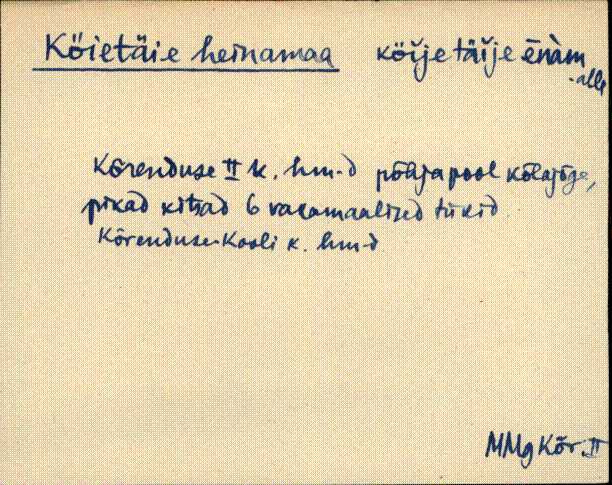 Köietäie heinamaa köĭje täĭje ēǹàm
-alle
Kõrenduse II k. hm-d põhjapool kõlajõge,
pikad kitsad 6 vakamaalised tükid.
Kõrenduse-Kooli k. hm-d
MMg Kõr. II